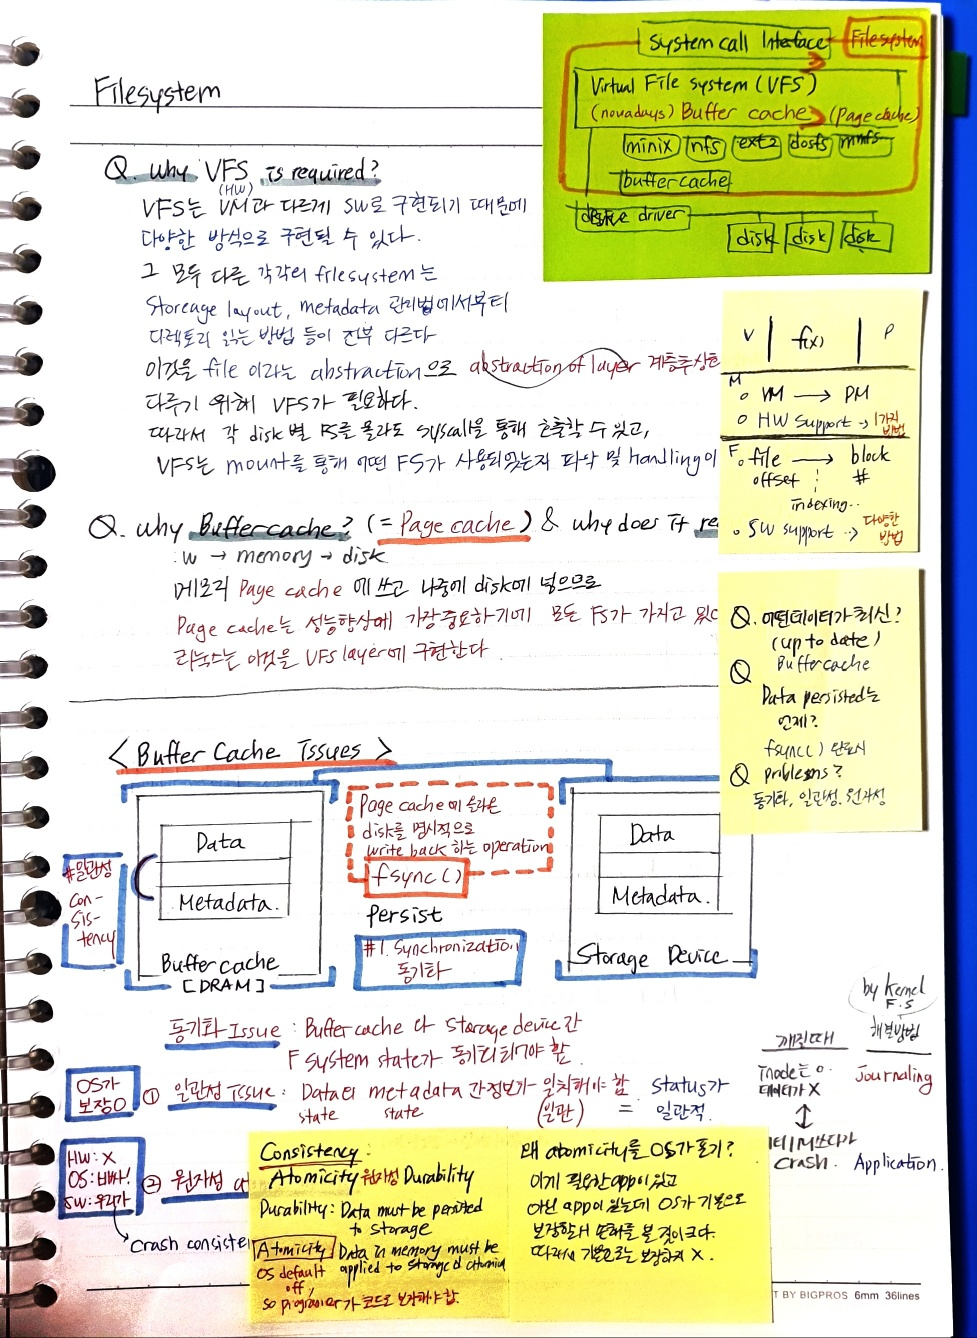 Filesystem
System call Interface
Filesystem
Virtual File system (VFS)
(nowadays) Buffer cache (page cache)
minix nfs ext2 dosfs mmfs
buffer cache
device driver
disk disk disk
Q. why VFS is required?
(HW)
VFS는 VM과 다르게 SW로 구현되기 때문에
다양한 방식으로 구현될 수 있다.
그 모두 다른 각각의 filesystem는
Storeage layout, metadata 관리법에서부터
디렉토리 읽는 방법 등이 전부 다르다
이것을 file 이라는 abstraction으로 abstraction of layer 계층추상화
다루기 위해 VFS가 필요하다.
따라서 각 disk 별 FS를 몰라도 syscall을 통해 호출할 수 있고,
VFS는 mount를 통해 어떤 FS가 사용되었는지 파악 및 handling이
V f(x) P
M
o VM → PM
o HW support → 1가지 방법
F
o file → block
offset #
indexing...
o SW support → 다양한 방법
Q. why Buffercache? (= Page cache) & why does it re
: w → memory → disk
메모리 Page cache 에 쓰고 나중에 disk에 넣으므로
Page cache는 성능향상에 가장 중요하기에 모든 FS가 가지고 있
리눅스는 이것을 VFS layer에 구현한다
Q. 어떤데이터가 최신?
(up to date)
Buffercache
Q Data persisted는
언제?
fsync()
Q problems?
동기화, 일관성, 원자성
< Buffer Cache Issues >
Data
Metadata.
Buffer cache
[DRAM]
#일관성
Con-
sis-
tency
Page cache 에 올라온
disk를 명시적으로
write back 하는 operation
fsync()
persist
#1. Synchronization
동기화
Data
Metadata.
Storage Device
동기화 Issue : Buffer cache 와 Storage device간
F system state가 동기화되어야 함.
OS가
보장O
① 일관성 Issue : Data와 metadata 간정보가 일치해야 함 = status가
state state (일관) 일관적.
HW: X
OS: 비싸!
SW: 우리가
② 원자성
Crash consiste
by kernel
F.S
해결방법
깨진때
Inode는 O.
데이터가 X
Journaling
쓰다가
crash.
Application.
Consistency:
Atomicity 원자성 Durability
Durability: Data must be persited
to storage
Atomicity Data in memory must be
applied to storage
OS default
off,
so programer가 코드로 보장해야 함.
왜 atomicity를 OS가 포기?
이게 필요한 app이 있고
아닌 app이 있는데 OS가 기본으로
보장함에 손해를 볼 것이 크다.
따라서 기본으로는 보장하지 X.
T BY BIGPROS 6mm 36lines